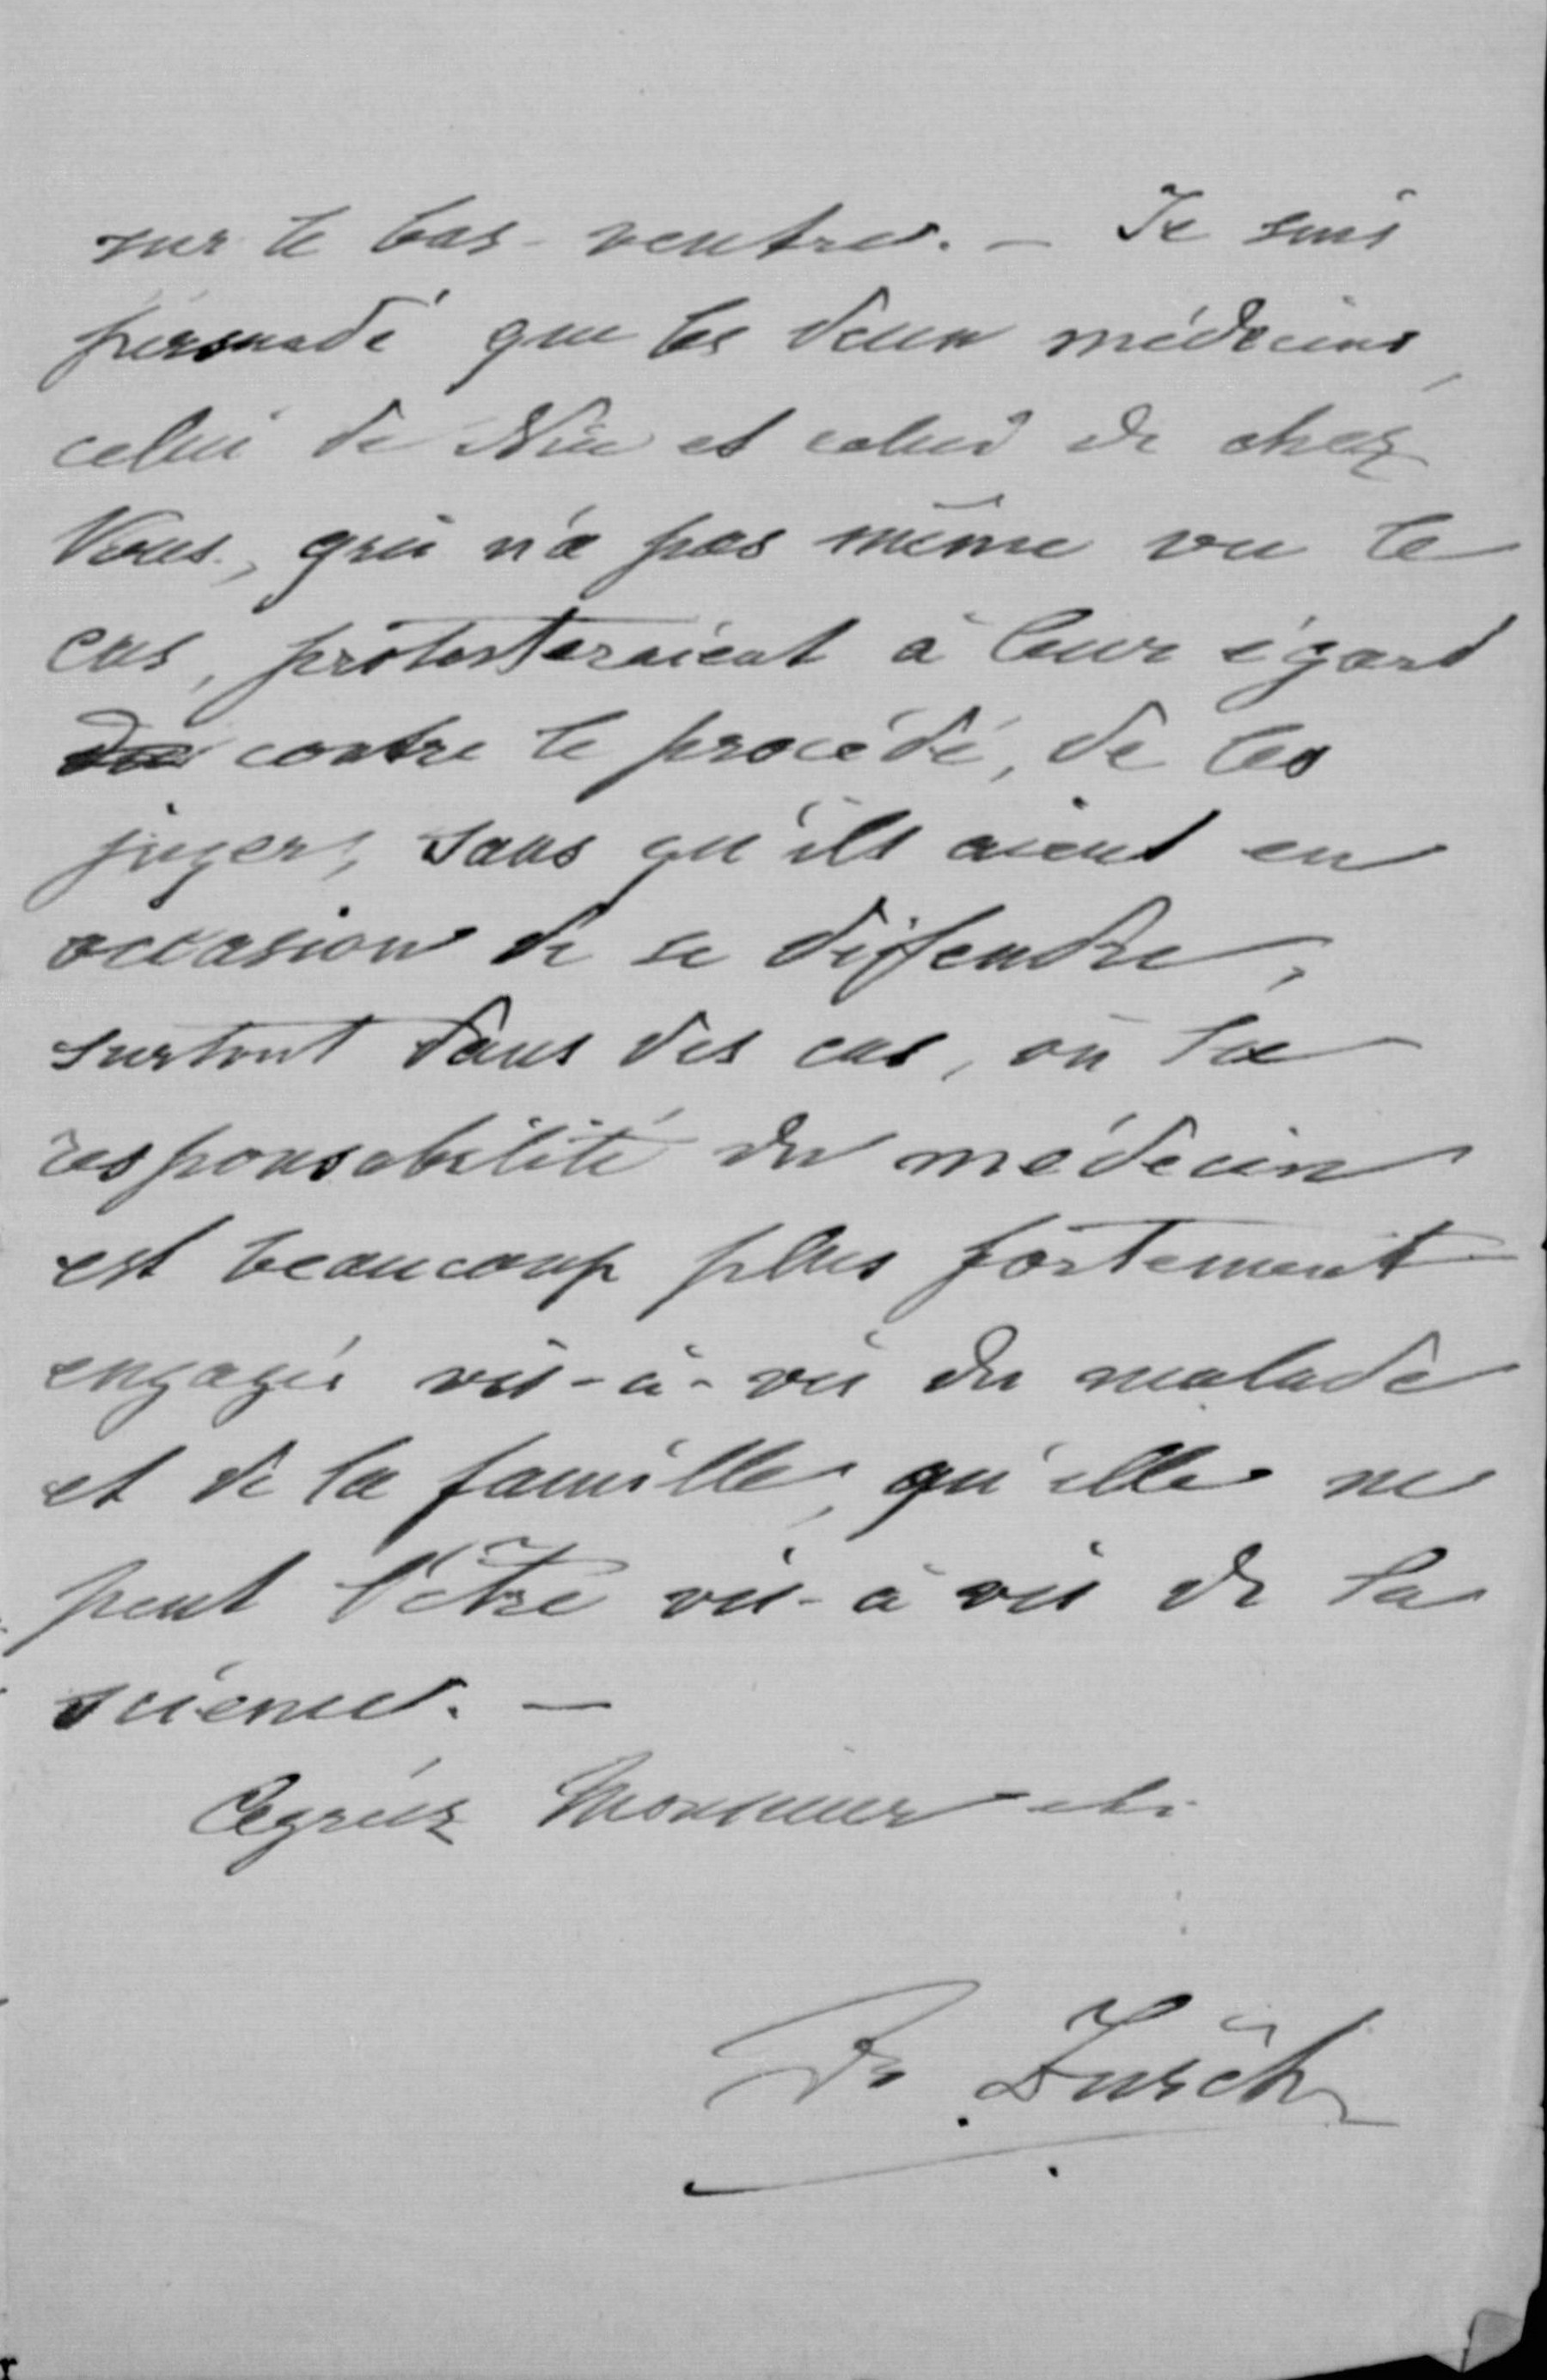 sur le bas-ventre. – Je suis
persuadé que les deux médecins,
celui de Nice et celui de chez
Vous, qui n'a pas même vu le
cas, protesteraient à leur égard
contre le procédé, de les
juger, sans qu'ils aient eu
occasion de se diffendre,
surtout dans des cas, où la
responsabilité du médecin
est beaucoup plus fortement
engagée vis-à-vis du malade
et de la famille, qu'elle ne
peut l'être vis-à vis de la
science. –
Agréez Monsieur etc.
Dr